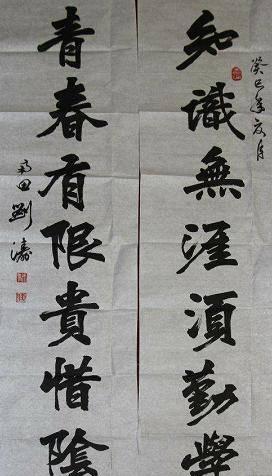 癸巳年夏月
知識無涯須勤學
青春有限貴惜陰
劉濤